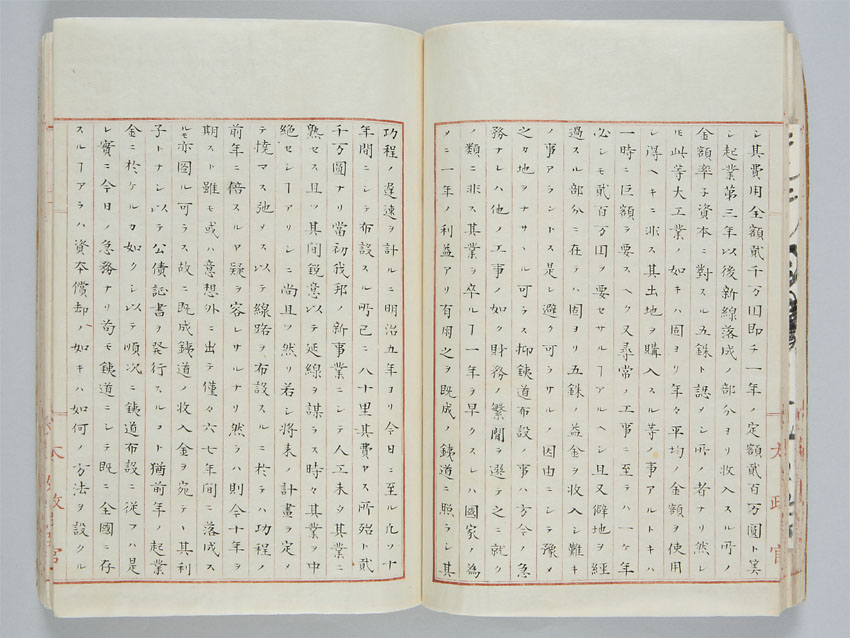 シ其費用全額貳千万円即チ一年ノ定額貳百万圓ト算
シ起業第三年以後新線落成ノ部分ヨリ收入スル所ノ
金額率子資本ニ對スル五銖ト認メシ所ノ者ナリ然レ
𪜈此等大工業ノ如キハ固ヨリ年々平均ノ金額ヲ使用
シ得ヘキニ非ス其出地ヲ購入スル等ノ事アルトキハ
一時ニ巨額ヲ要スヘク又尋常ノ工事ニ至テハ一ケ年
必シモ貳百万円ヲ要セサルヿアルヘシ且又僻地ヲ經
過スル部分ニ在テハ固ヨリ五銖ノ益金ヲ收入シ難キ
ノ事アランドス是レ避ク可ラサルノ因由ニシテ豫メ
之カ地ヲナサヽル可ラス抑鉄道布設ノ事ハ方今ノ急
務ナレハ他ノ工事ノ如ク財務ノ繁閑ヲ選テ之ニ就ク
ノ類ニ非ス其業ヲ卒ルヿ一年ヲ早クスレハ國家ノ為
メニ一年ノ利益アリ有用之ヲ既成ノ鉄道ニ照ラシ其
功程ノ遅速ヲ計ルニ明治五年ヨリ今日ニ至ル凡ソ十
年間ニシテ布設スル所已ニ八十里其費ヤス所殆ト貳
千万圓ナリ當初我邦ノ新事業ニシテ人工未タ其業ニ
熟セス且ツ其間鋭意以テ延線ヲ謀ラス時々其業ヲ中
絶セシヿアリシニ尚且ツ然リ若シ将来ノ計畫ヲ定メ
テ撓マス弛メス以テ線路ヲ布設スルニ於テハ功程ノ
前年ニ倍スルヤ疑ヲ容レサルナリ然ラハ則今十年ヲ
期スト雖モ或ハ意想外ニ出テ僅々六七年間ニ落成ス
ルモ亦図ル可ラス故ニ既成鉄道ノ收入金ヲ宛テ其利
子トナシ以テ公債証書ヲ発行スルヿ猶前年ノ起業
金ニ於ケルカ如クシ以テ順次ニ鉄道布設ニ從フハ是
レ實ニ今日ノ急務ナリ苟モ鉄道ニシテ既ニ全國ニ存
スルヿアラハ資本償却ノ如キハ如何ノ方法ヲ設クル
太政官